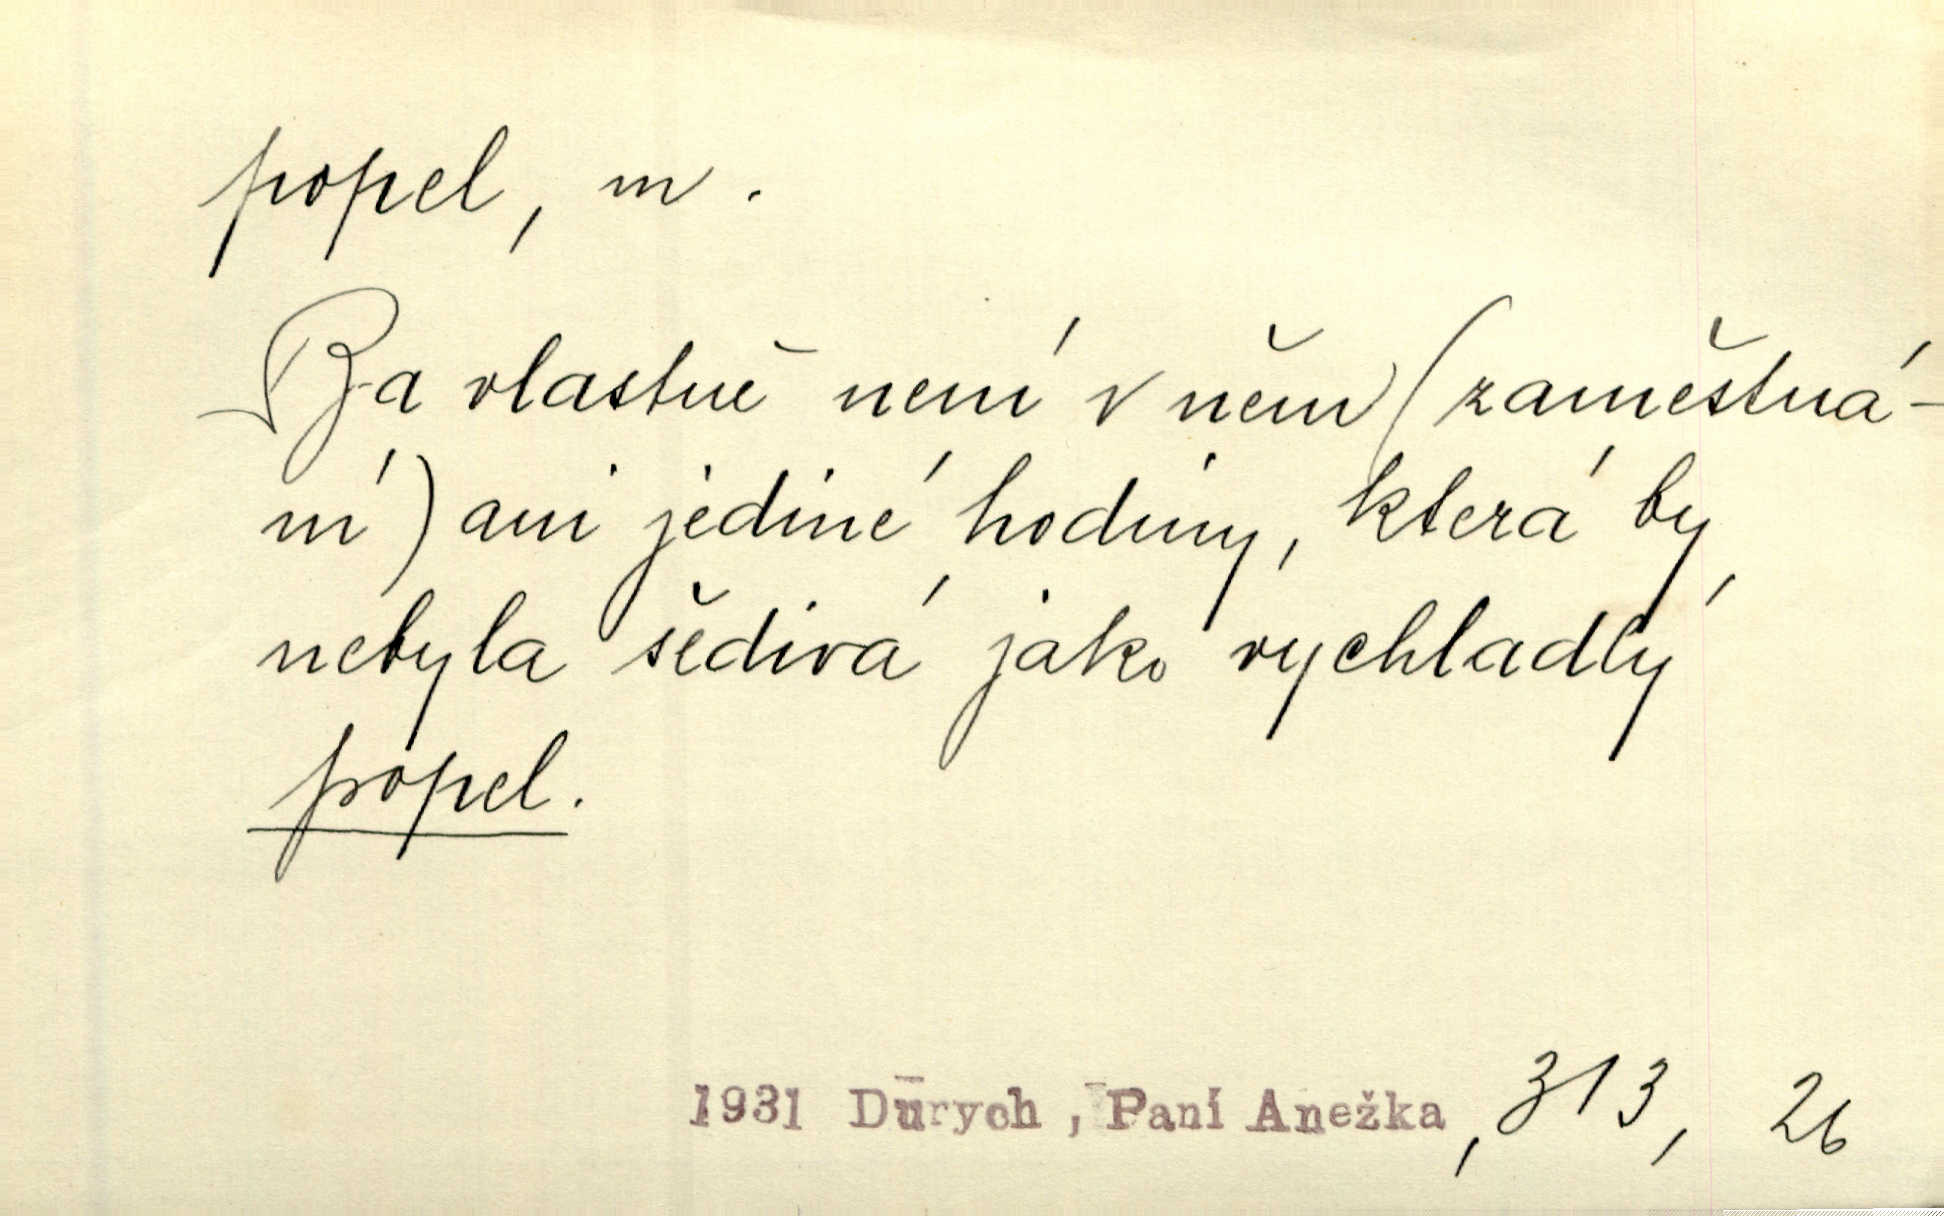 popel, m.
Ba vlastně není v něm (zaměstná-
ní) ani jediné hodiny, která by
nebyla šedivá jako vychladlý
popel.
1931 Durych, Paní Anežka, 313, 26